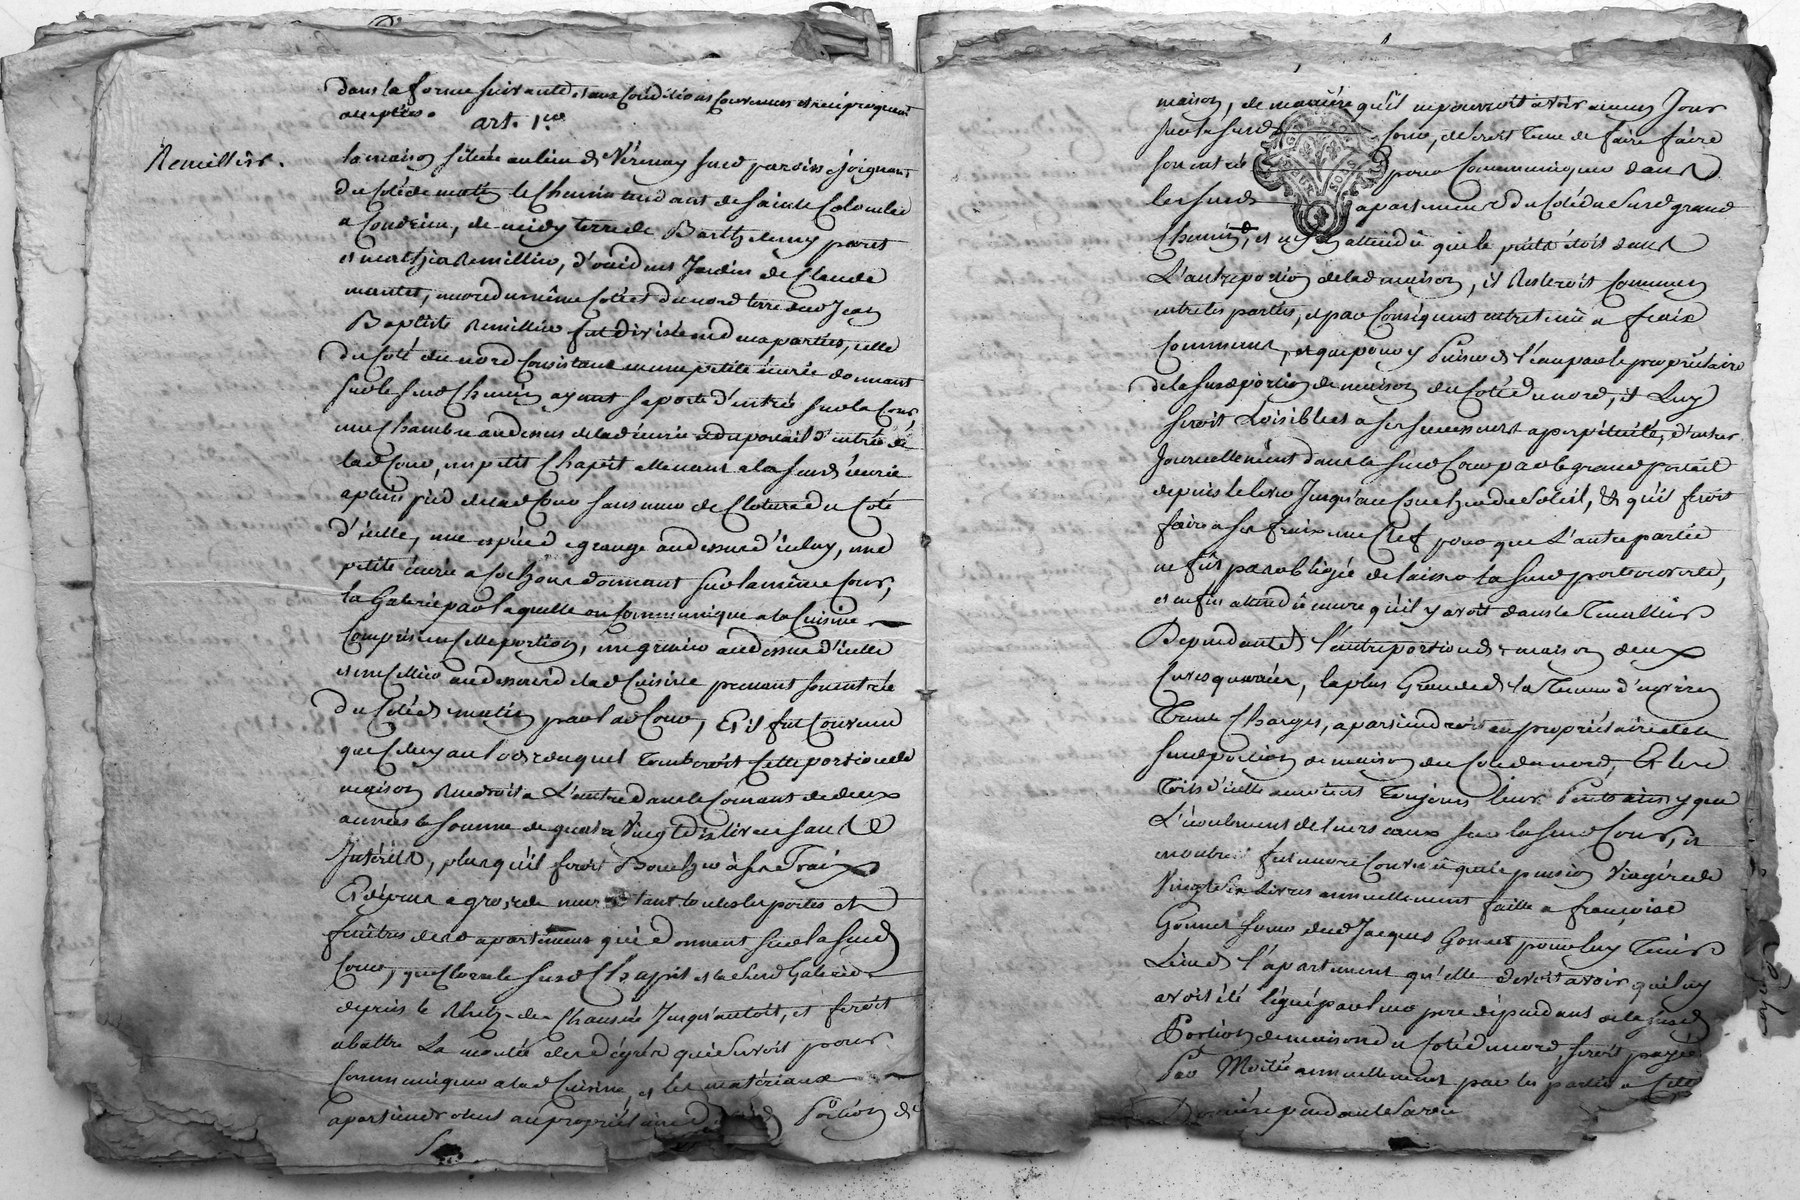 dans la forme suivante et aux conditions convenues et reciproquemt
acceptées.
art. 1er
Remillier.
la maison située au lieu de Vérenay susd paroisse joignant
du coté de matin le chemin tendant de Sainte Colombe
a Condrieu, de midy terre de Barthelemy paret
et mathieu Remillier, d'occident Jardin de Claude
mantes, encore du même coté et du nord terre dud Jean
Baptiste Remillier fut divisée en deux parties, celle
du coté du nord consistant en une petite écurie donnant
sur le susd chemin ayant sa porte d'entrée sur la cour,
une chambre au dessus de lad écurie et du portail d'entrée de
lad cour, un petit chapit attenant a la susd écurie
a plain pied de lad cour sans mur de cloture du coté
d'icelle, une espece de grange au dessus d'iceluy, une
petite écurie a cochons donnant sur la même cour,
la Galerie par laquelle on communique a la cuisine
comprise en cette portion, un grenier au dessus d'icelle
et un cellier au dessous de lad cuisine prenant son entrée
du coté de matin par lad cour, Et il fut convenu
que celuy au lot duquel tomberoit cette portion de
maison rendroit a L'autre dans le courant de deux
années la somme de quatre vingt dix livres sans
Intérêts, plus qu'il feroit Boucher à ses fraix
Et dépens a gros de mur tant toutes les portes et
fenêtres desd apartemens qui donnent sur la susd
Cour, que clorre le susd Chapit et la susd Galerie
depuis le Rhez-de Chaussée Jusqu'au toît, et feroit
abattre La montée des dégrés qui servoit pour
Communiquer a lad Cuisine, et les matériaux
apartiendroient au propriétaire de Portion de
maison, de manière qu'il ne pourroit avoir aucun Jour
sur la susd cour, et seroit Tenu de faire faire
son entrée pour Communiquer dans
les susds apartemens du coté du susd grand
Chemin, et attendu que le puits étoit dans
L'autre portion de lad maison, il Resteroit Commun
entre les parties, et par Conséquent entretenu a fraix
Communs, et que pour y Puiser de l'eau par le propriétaire
de la susd portion de maison du Coté du nord, il Luy
seroit Loisible et a ses successeurs a perpétuité, d'entrer
Journellement dans la susd Cour par le grand portail
depuis le lever Jusqu'au Coucher du Soleil, & qu'il feroit
faire a ses fraix une Clef pour que L'autre partie
ne fut pas obligée de laisser la susd porte ouverte,
et enfin attendu encore qu'il y avoit dans le Cuvellier
Dependante de l'autre portion de maison deux
Cuves quarrées, la plus Grande de la Teneur d'environ
Trente Charges, apartiendroit au propriétaire de la
susd portion de maison du Coté du nord, Et les
Toits d'icelle auroient Toujours leurs Pentes ainsy que
L'écoulement de leurs eaux sur la susd Cour, et
en outre fut encore convenu que la pension Viagère de
Vingt Six Livres annuellement faitte a françoise
Gonnet femme dud Jacques Gonnet pour luy Tenir
Lieu de l'apartement qu'elle devoit avoir qui luy
avoit été légué par leur pere dépendans de la susd
Portion de maison du Coté du nord, seroit payée
Par Moitié annuellement par les parties a cette
dernière pendant sa vie